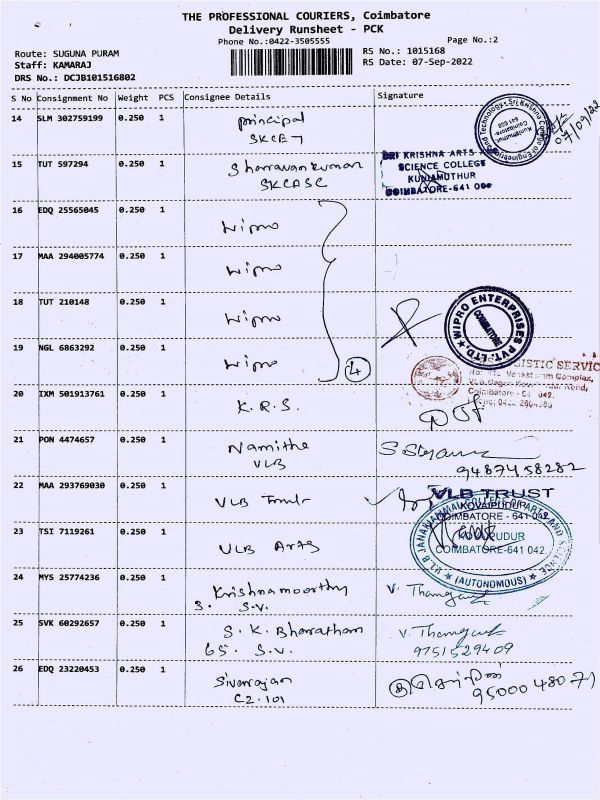 THE PROFESSIONAL COURIERS, Coimbatore
Delivery Runsheet - PCK
Phone No.:0422-3505555
Page No.:2
Route: SUGUNA PURAM
RS No.: 1015168
Staff: KAMARAJ
RS Date: 07-Sep-2022
DRS No.: DCJB101516802
S No Consignment No Weight PCS Consignee Details Signature
14 SLM 302759199 0.250 1 principal
SKCET
07/09/22
15 TUT 597294 0.250 1 Sharravankumar
SKCASC
SRI KRISHNA ARTS
SCIENCE COLLEGE
KUNIAMUTHUR
COIMBATORE-641 008
16 EDQ 25565045 0.250 1 wipro
17 MAA 294005774 0.250 1 wipro
18 TUT 210148 0.250 1 wipro
WIPRO ENTERPRISES PVT. LTD.
COIMBATORE
19 NGL 6863292 0.250 1 wipro
4
20 IXM 501913761 0.250 1 K.R.S.
21 PON 4474657 0.250 1 Namitha
VLB
9487458282
22 MAA 293769030 0.250 1 VLB Trust
VLB TRUST
KOVAIPUDUR
COIMBATORE - 641 042
23 TSI 7119261 0.250 1 VLB Arts
KOVAIPUDUR
COIMBATORE-641 042
(AUTONOMOUS)
24 MYS 25774236 0.250 1 Krishnamoorthy
S. S.V.
25 SVK 60292657 0.250 1 S.K. Bharatham
65. S.V.
9751529409
26 EDQ 23220453 0.250 1 Sivarajan
C2.101
95000 48071